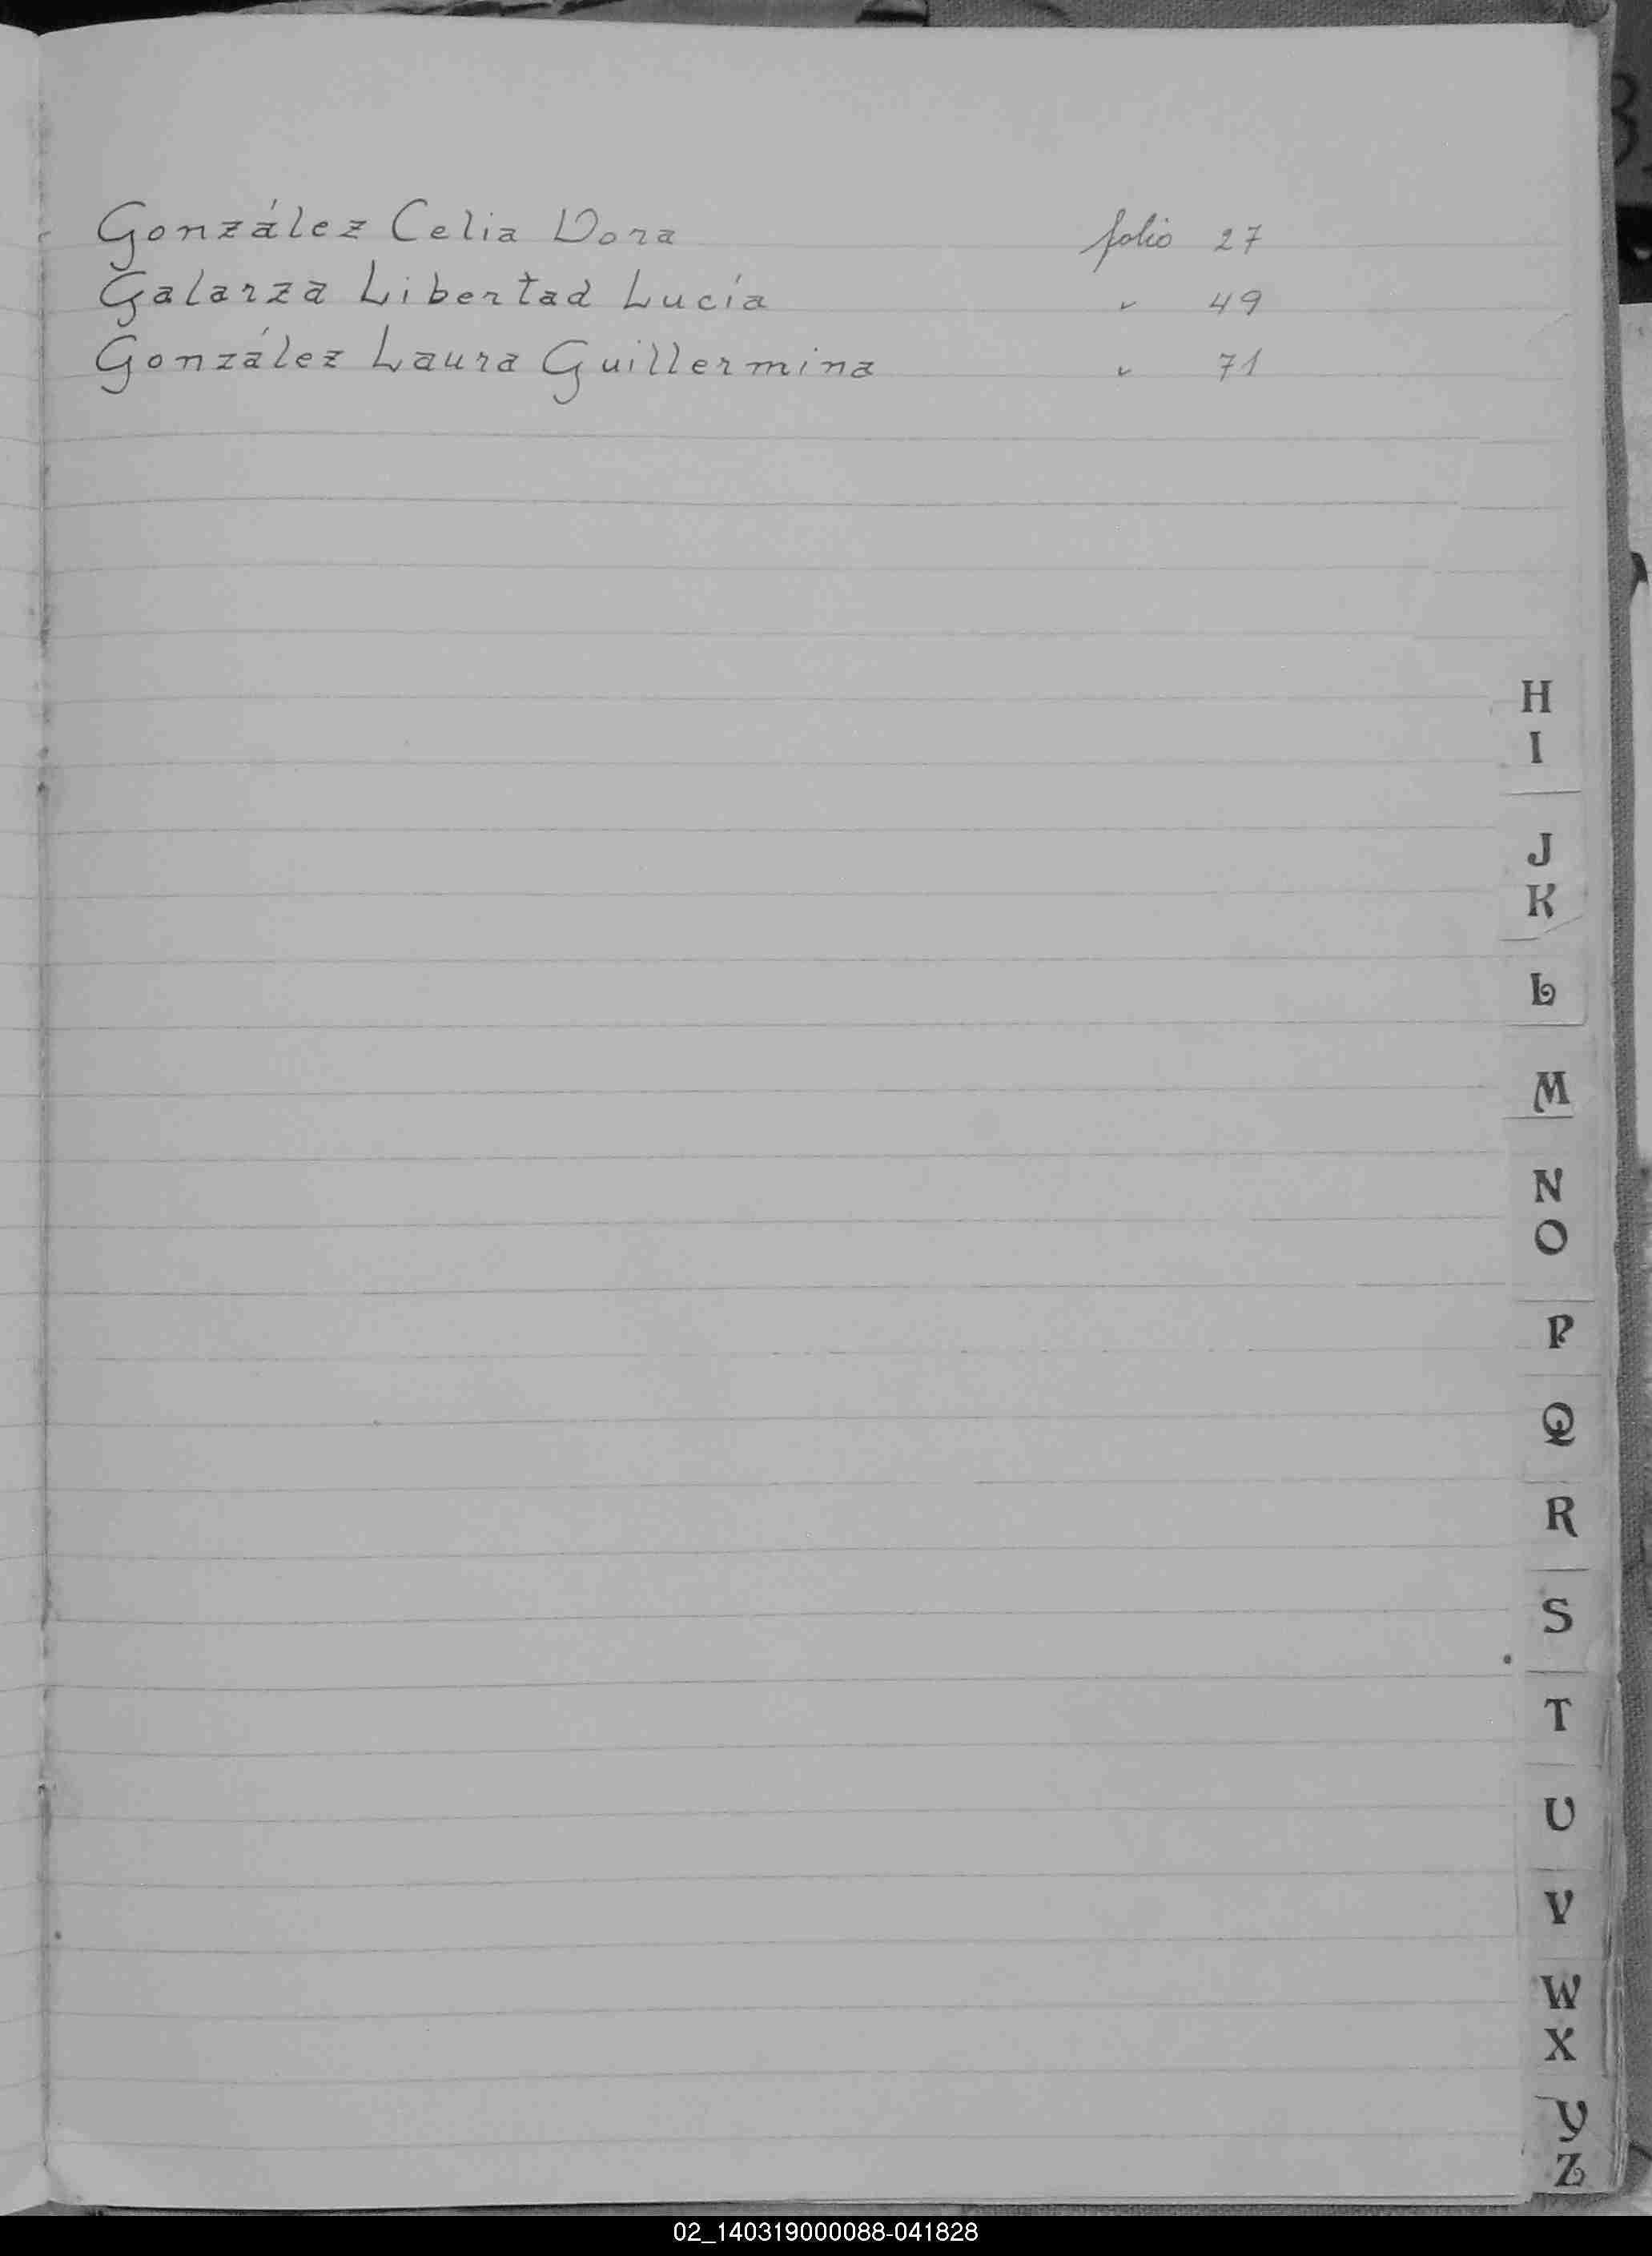 González Celia Dora folio 27
Galarza Libertad Lucía " 49
González Laura Guillermina " 71
H
I
J
K
L
M
N
O
P
Q
R
S
T
U
V
W
X
Y
Z
02_140319000088-041828